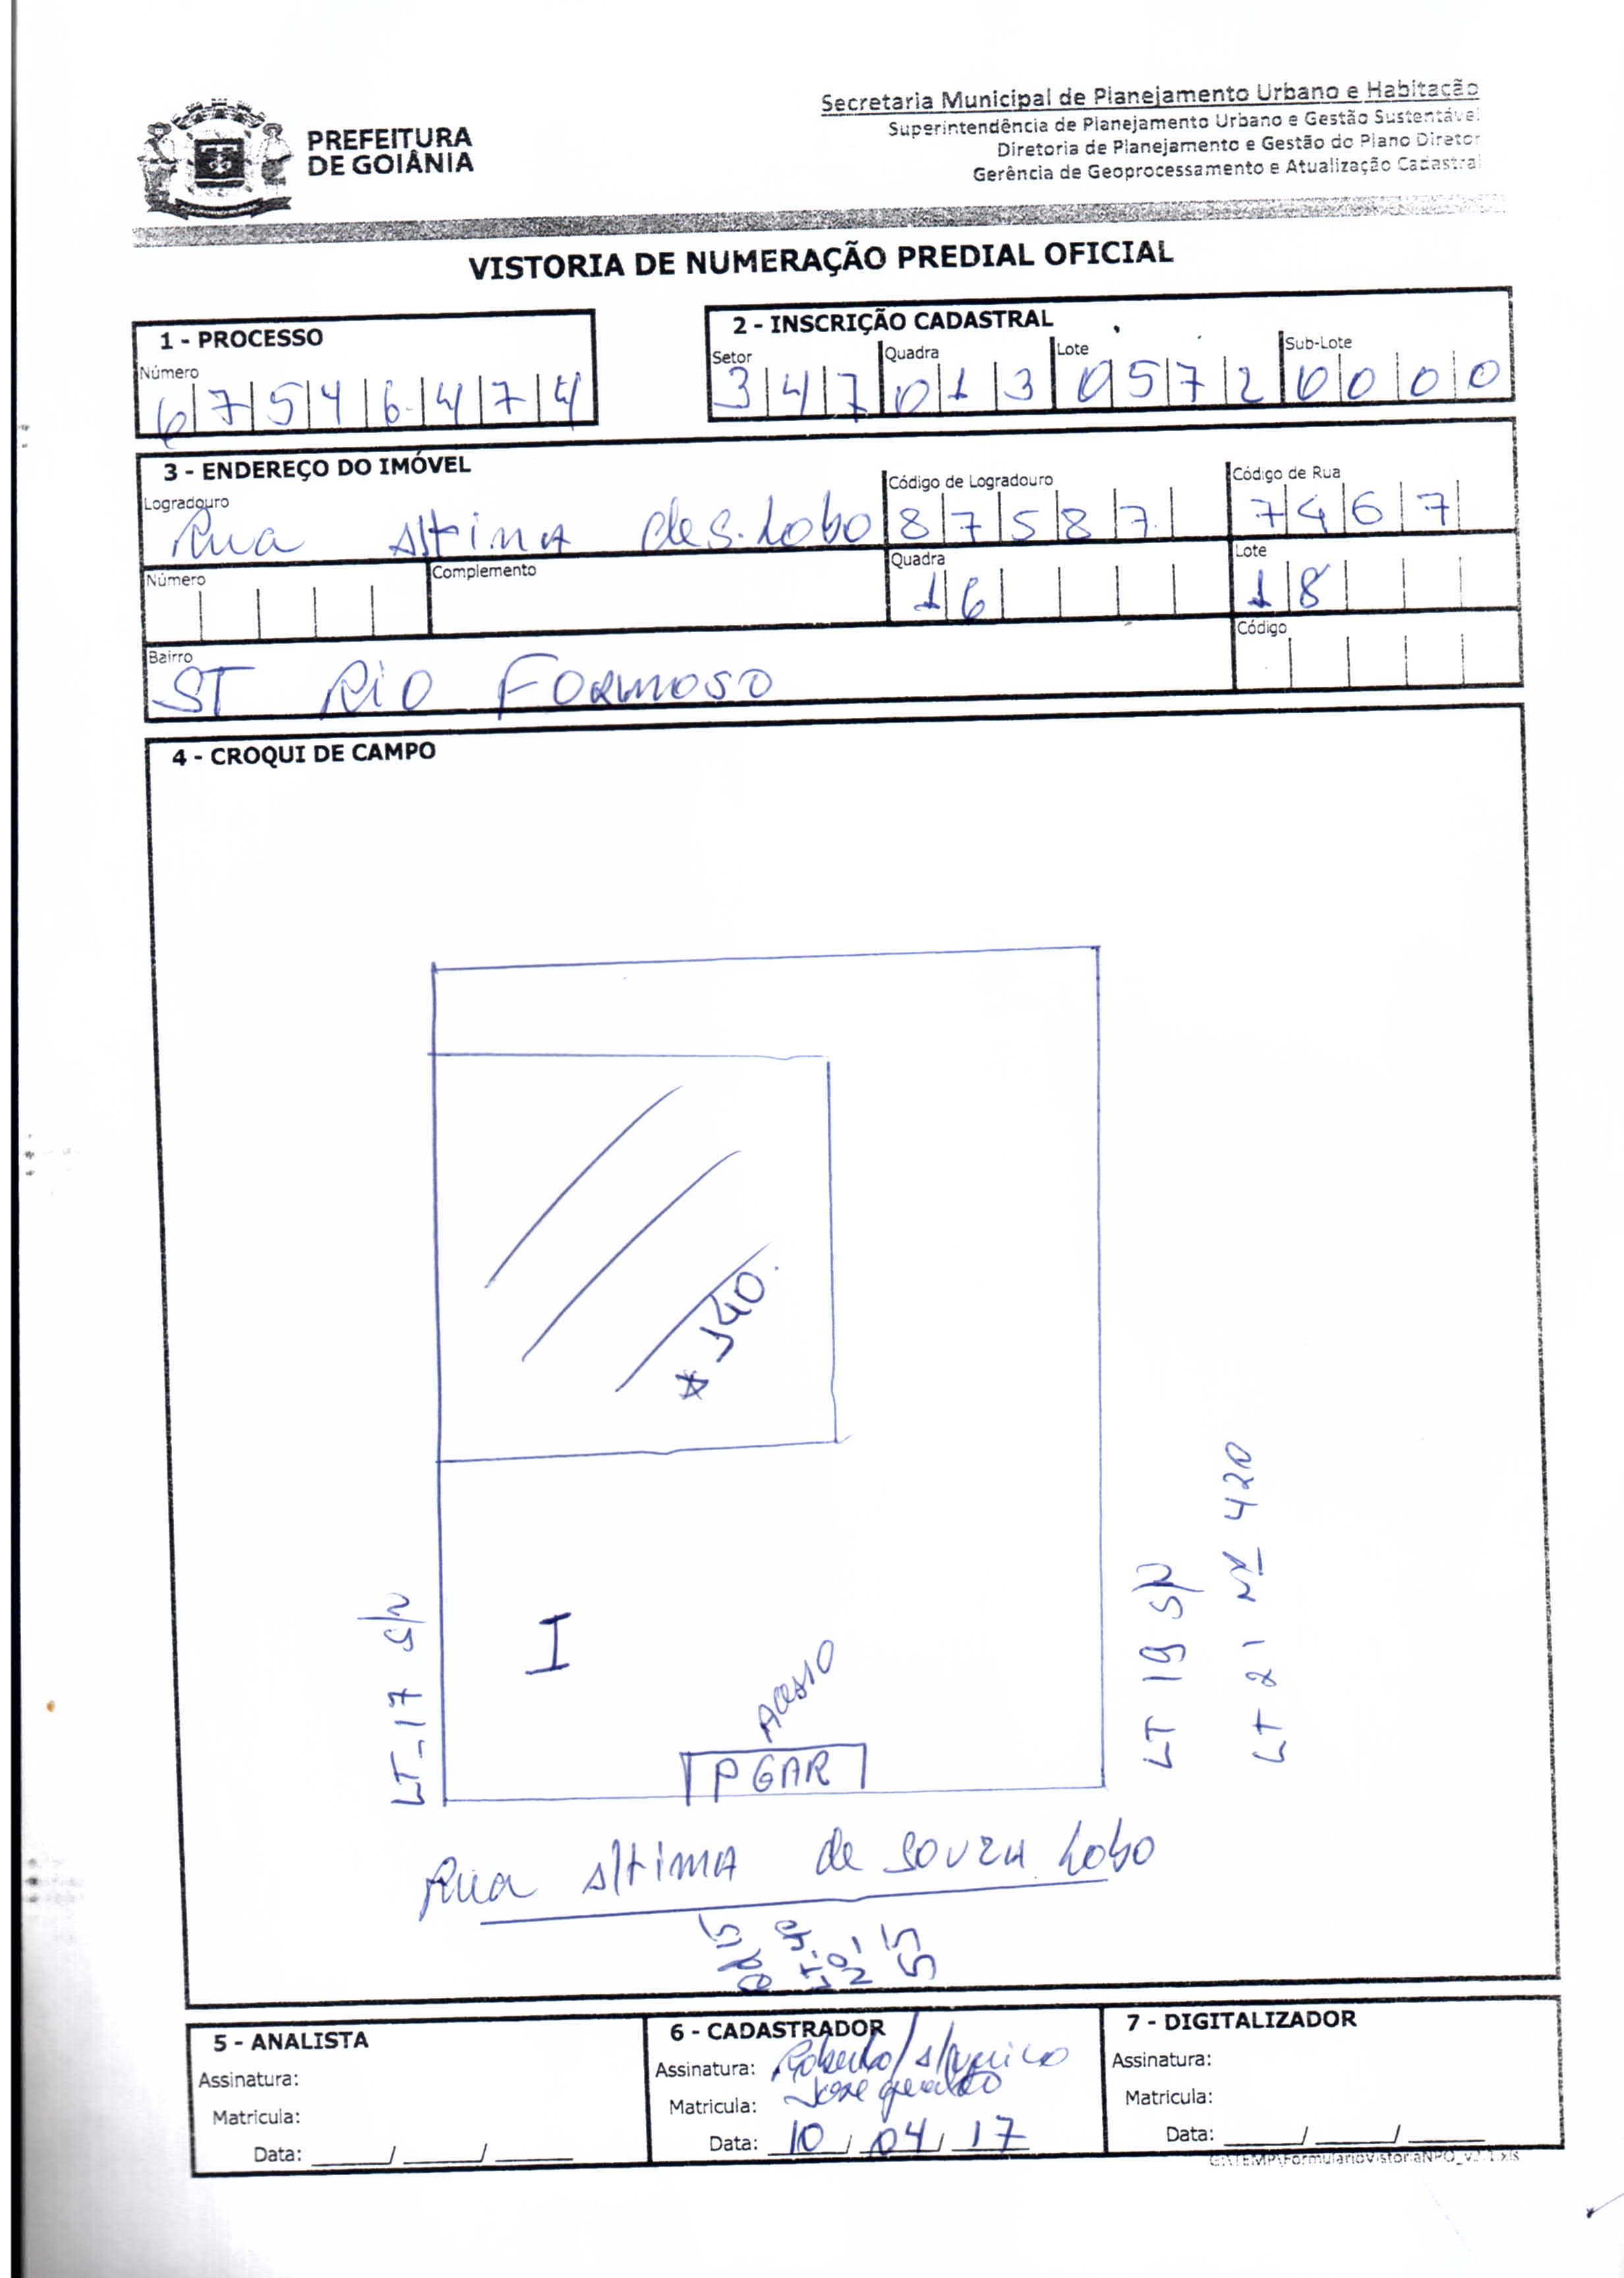 Secretaria Municipal de Planejamento Urbano e Habitação
Superintendência de Planejamento Urbano e Gestão Sustentável
Diretoria de Planejamento e Gestão do Plano Diretor
Gerência de Geoprocessamento e Atualização Cadastral
PREFEITURA
DE GOIÂNIA
VISTORIA DE NUMERAÇÃO PREDIAL OFICIAL
1 - PROCESSO
Número
6 7 5 4 6 4 7 4
2 - INSCRIÇÃO CADASTRAL
Setor Quadra Lote Sub-Lote
3 4 7 0 1 3 0 5 7 2 0 0 0 0
3 - ENDEREÇO DO IMÓVEL
Logradouro Código de Logradouro Código de Rua
Rua Altina de S. Lobo 8 7 5 8 7 7 4 6 7
Número Complemento Quadra Lote
1 6 1 8
Bairro Código
ST RIO FORMOSO
4 - CROQUI DE CAMPO
* 140.
I
ACESSO
P GAR
LT_17 S/N
LT 19 S/N
LT 21 Nº 420
Rua Altima de Souza Lobo
5 - ANALISTA
Assinatura:
Matricula:
Data: / /
6 - CADASTRADOR
Assinatura: Roberto /
José Geraldo
Matricula:
Data: 10 / 04 / 17
7 - DIGITALIZADOR
Assinatura:
Matricula:
Data: / /
G:\TEMP\FormularioVistoriaNPO_v2.1.xls